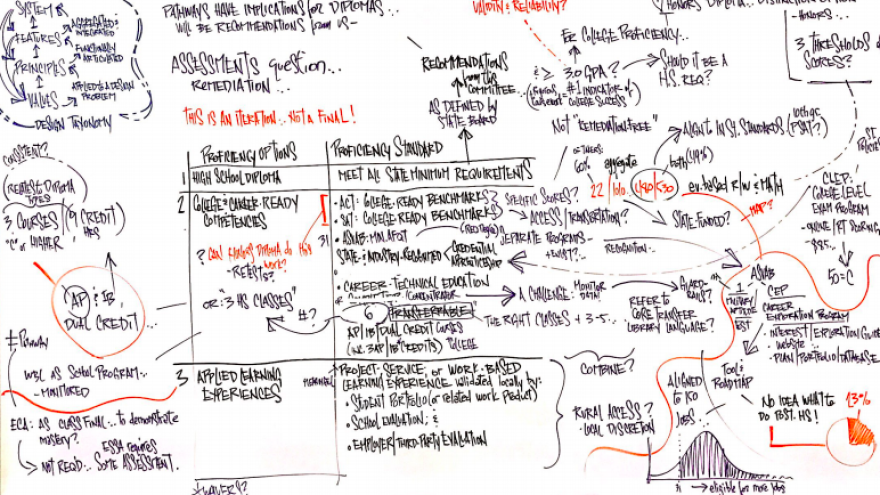 SYSTEM
AGGREGATED &
INTEGRATED
FEATURES
FUNCTIONALLY
ARTICULATED
PRINCIPLES
APPLIED TO A DESIGN
PROBLEM
VALUES
DESIGN TAXONOMY
PATHWAYS HAVE IMPLICATIONS FOR DIPLOMAS..
WILL BE RECOMMENDATIONS from US-
ASSESSMENTS question...
REMEDIATION...
THIS IS AN ITERATION.. NOT A FINAL!
RECOMMENDATIONS
from this
COMMITTEE..
AS DEFINED BY
STATE BOARD
VALIDITY & RELIABILITY?
For COLLEGE PROFICIENCY...
3.0 GPA?
= #1 INDICATOR of
COLLEGE SUCCESS
SHOULD IT BE A
H.S. REQ?
HONORS DIPLOMA..
-HONORS..
3 THRESHOLDS of
SCORES?
NOT "REMEDIATION FREE"
ALIGN TO IN ST. STANDARDS
(PSAT?)
PROFICIENCY OPTIONS
PROFICIENCY STANDARD
1 HIGH SCHOOL DIPLOMA
MEET ALL STATE MINIMUM REQUIREMENTS
2 COLLEGE & CAREER-READY
COMPETENCIES
? CAN HONORS DIPLOMA do this
work?
OR: "3 HS CLASSES"
• ACT: COLLEGE-READY BENCHMARKS
• SAT: COLLEGE READY BENCHMARKS
• ASVAB: MIN. AFQT
STATE & INDUSTRY-RECOGNIZED
CREDENTIAL
APPRENTICESHIP
• CAREER-TECHNICAL EDUCATION
CONCENTRATOR
#?
6 TRANSFERRABLE
AP/IB/DUAL CREDIT COURSES
COLLEGE
3 APPLIED LEARNING
EXPERIENCES
PROJECT, SERVICE, or WORK-BASED
LEARNING EXPERIENCE validated locally by:
• STUDENT PORTFOLIO (or related work product)
• SCHOOL EVALUATION; &
• EMPLOYER/THIRD-PARTY EVALUATION
SPECIFIC SCORES?
ACCESS/TRANSPORTATION?
SEPARATE PROGRAMS-
RECOGNITION..
OTHERS:
60%
aggregate
22/1010.
480/530
ev. based R/W & MATH
STATE FUNDED?
MAP?
CLEP:
COLLEGE LEVEL
EXAM PROGRAM
$85..
50=C
CONSISTENT?
RELATES to DIPLOMA
TYPES
3 COURSES / 9 CREDIT
"C" or HIGHER
HRS
AP & IB,
DUAL CREDIT...
# PATHWAY
WBL AS SCHOOL PROGRAM..
- MONITORED
ECA: AS CLASS FINAL.. to demonstrate
mastery?
ESSA requires
NOT REQ'D.. SOME ASSESSMENT.
A CHALLENGE:
MONITOR
DATA!
GUARD-
RAILS?
THE RIGHT CLASSES + 3-5...
REFER to
CORE TRANSFER
LIBRARY LANGUAGE?
ASVAB
1
MILITARY
APTITUDE
TEST
CEP
CAREER
EXPLORATION PROGRAM
• INTEREST/EXPLORATION GUIDE
• website
• PLAN/PORTFOLIO/DATABASE
COMBINE?
RURAL ACCESS?
- LOCAL DISCRETION
ALIGNED
TO ICO
JOBS..
TOOL &
ROADMAP
NO IDEA WHAT to
DO POST. HS!
13%
31 → eligible for more jobs
* WAIVERS?